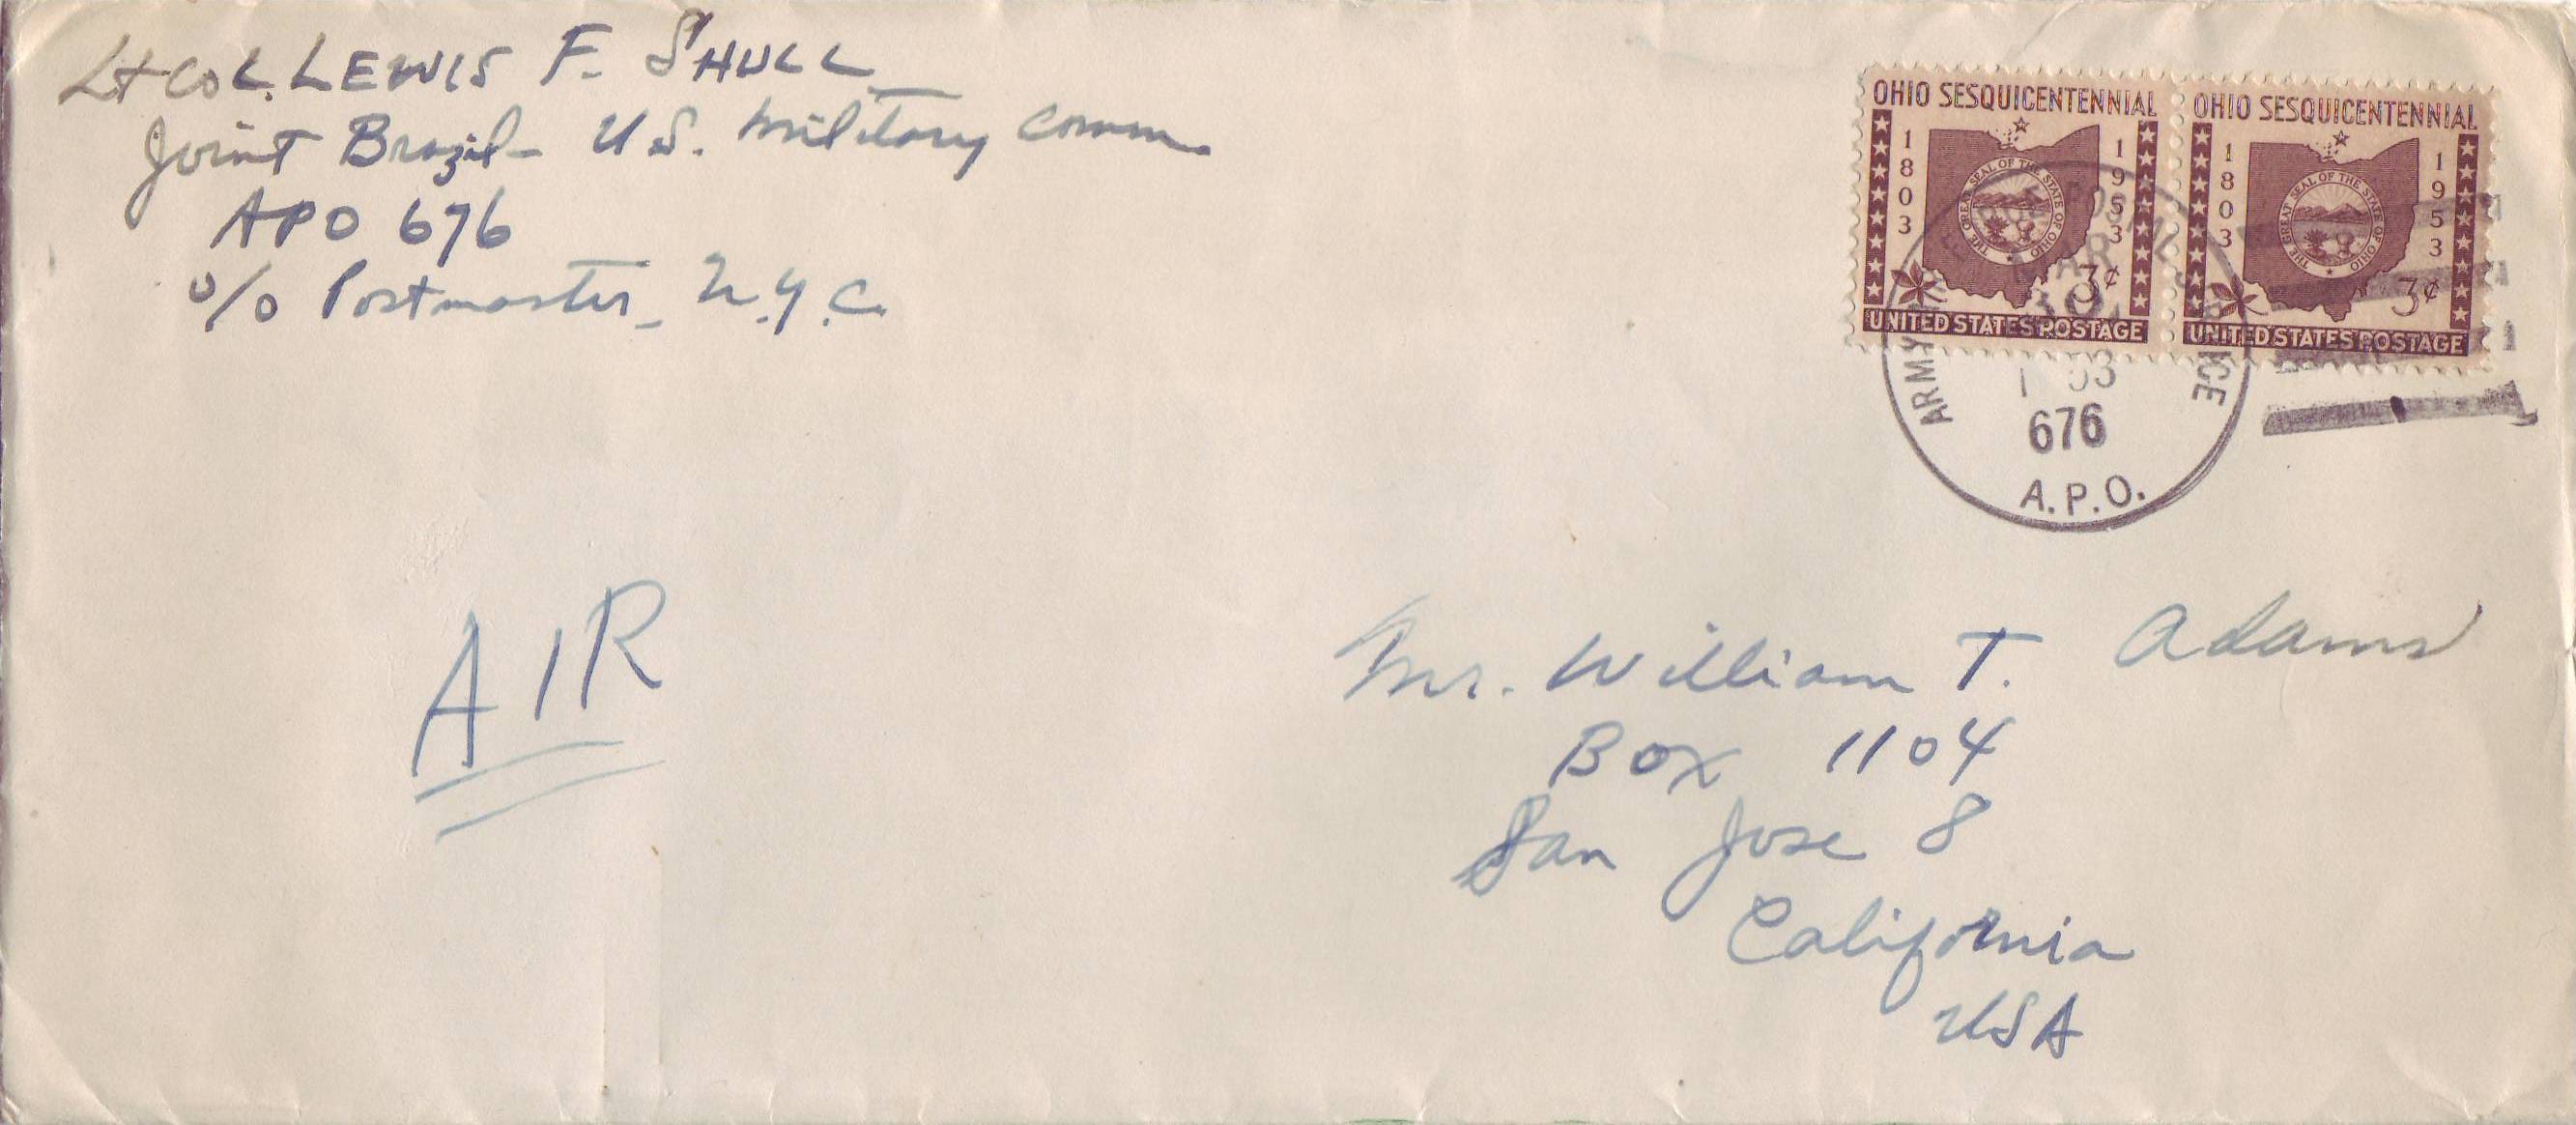 Lt COL. LEWIS F. SHULL
Joint Brazil - U.S. Military Comm.
APO 676
c/o Postmaster, N.Y.C.
OHIO SESQUICENTENNIAL
1803
1953
THE GREAT SEAL OF THE STATE OF OHIO
3¢
UNITED STATES POSTAGE
OHIO SESQUICENTENNIAL
1803
1953
THE GREAT SEAL OF THE STATE OF OHIO
3¢
UNITED STATES POSTAGE
ARMY
MAR
53
676
A.P.O.
AIR
Mr. William T. Adams
Box 1104
San Jose 8
California
USA